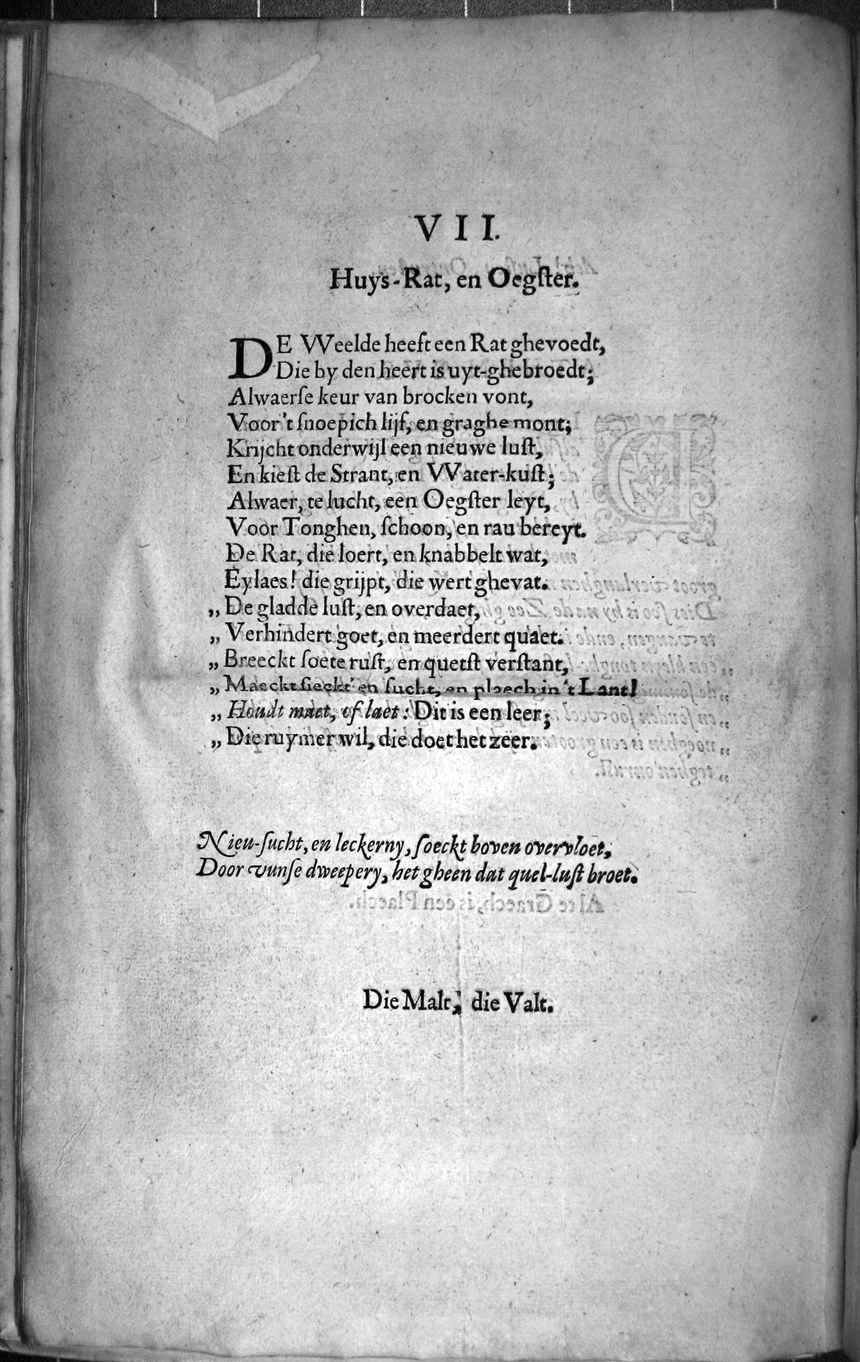 VII.
Huys-Rat, en Oegſter.
DE VVeelde heeft een Rat ghevoedt,
Die by den heert is uyt-ghebroedt;
Alwaerſe keur van brocken vont,
Voor 't ſnoepich lijf, en graghe mont;
Krijcht onderwijl een nieuwe luſt,
En kieſt de Strant, en VVater-kuſt;
Alwaer, te lucht, een Oegſter leyt,
Voor Tonghen, ſchoon, en rau bereyt.
De Rat, die loert, en knabbelt wat,
Eylaes! die grijpt, die wert ghevat.
„ De gladde luſt, en overdaet,
„ Verhindert goet, en meerdert quaet.
„ Breeckt ſoete ruſt, en quetſt verſtant,
„ Maeckt ſieckt' en ſucht, en plaech in 't Lant!
„ Houdt maet, of laet: Dit is een leer;
„ Die ruymer wil, die doet het zeer.
Nieu-ſucht, en leckerny, ſoeckt boven overvloet,
Door vunſe dweepery, het gheen dat quel-luſt broet.
Die Malt, die Valt.